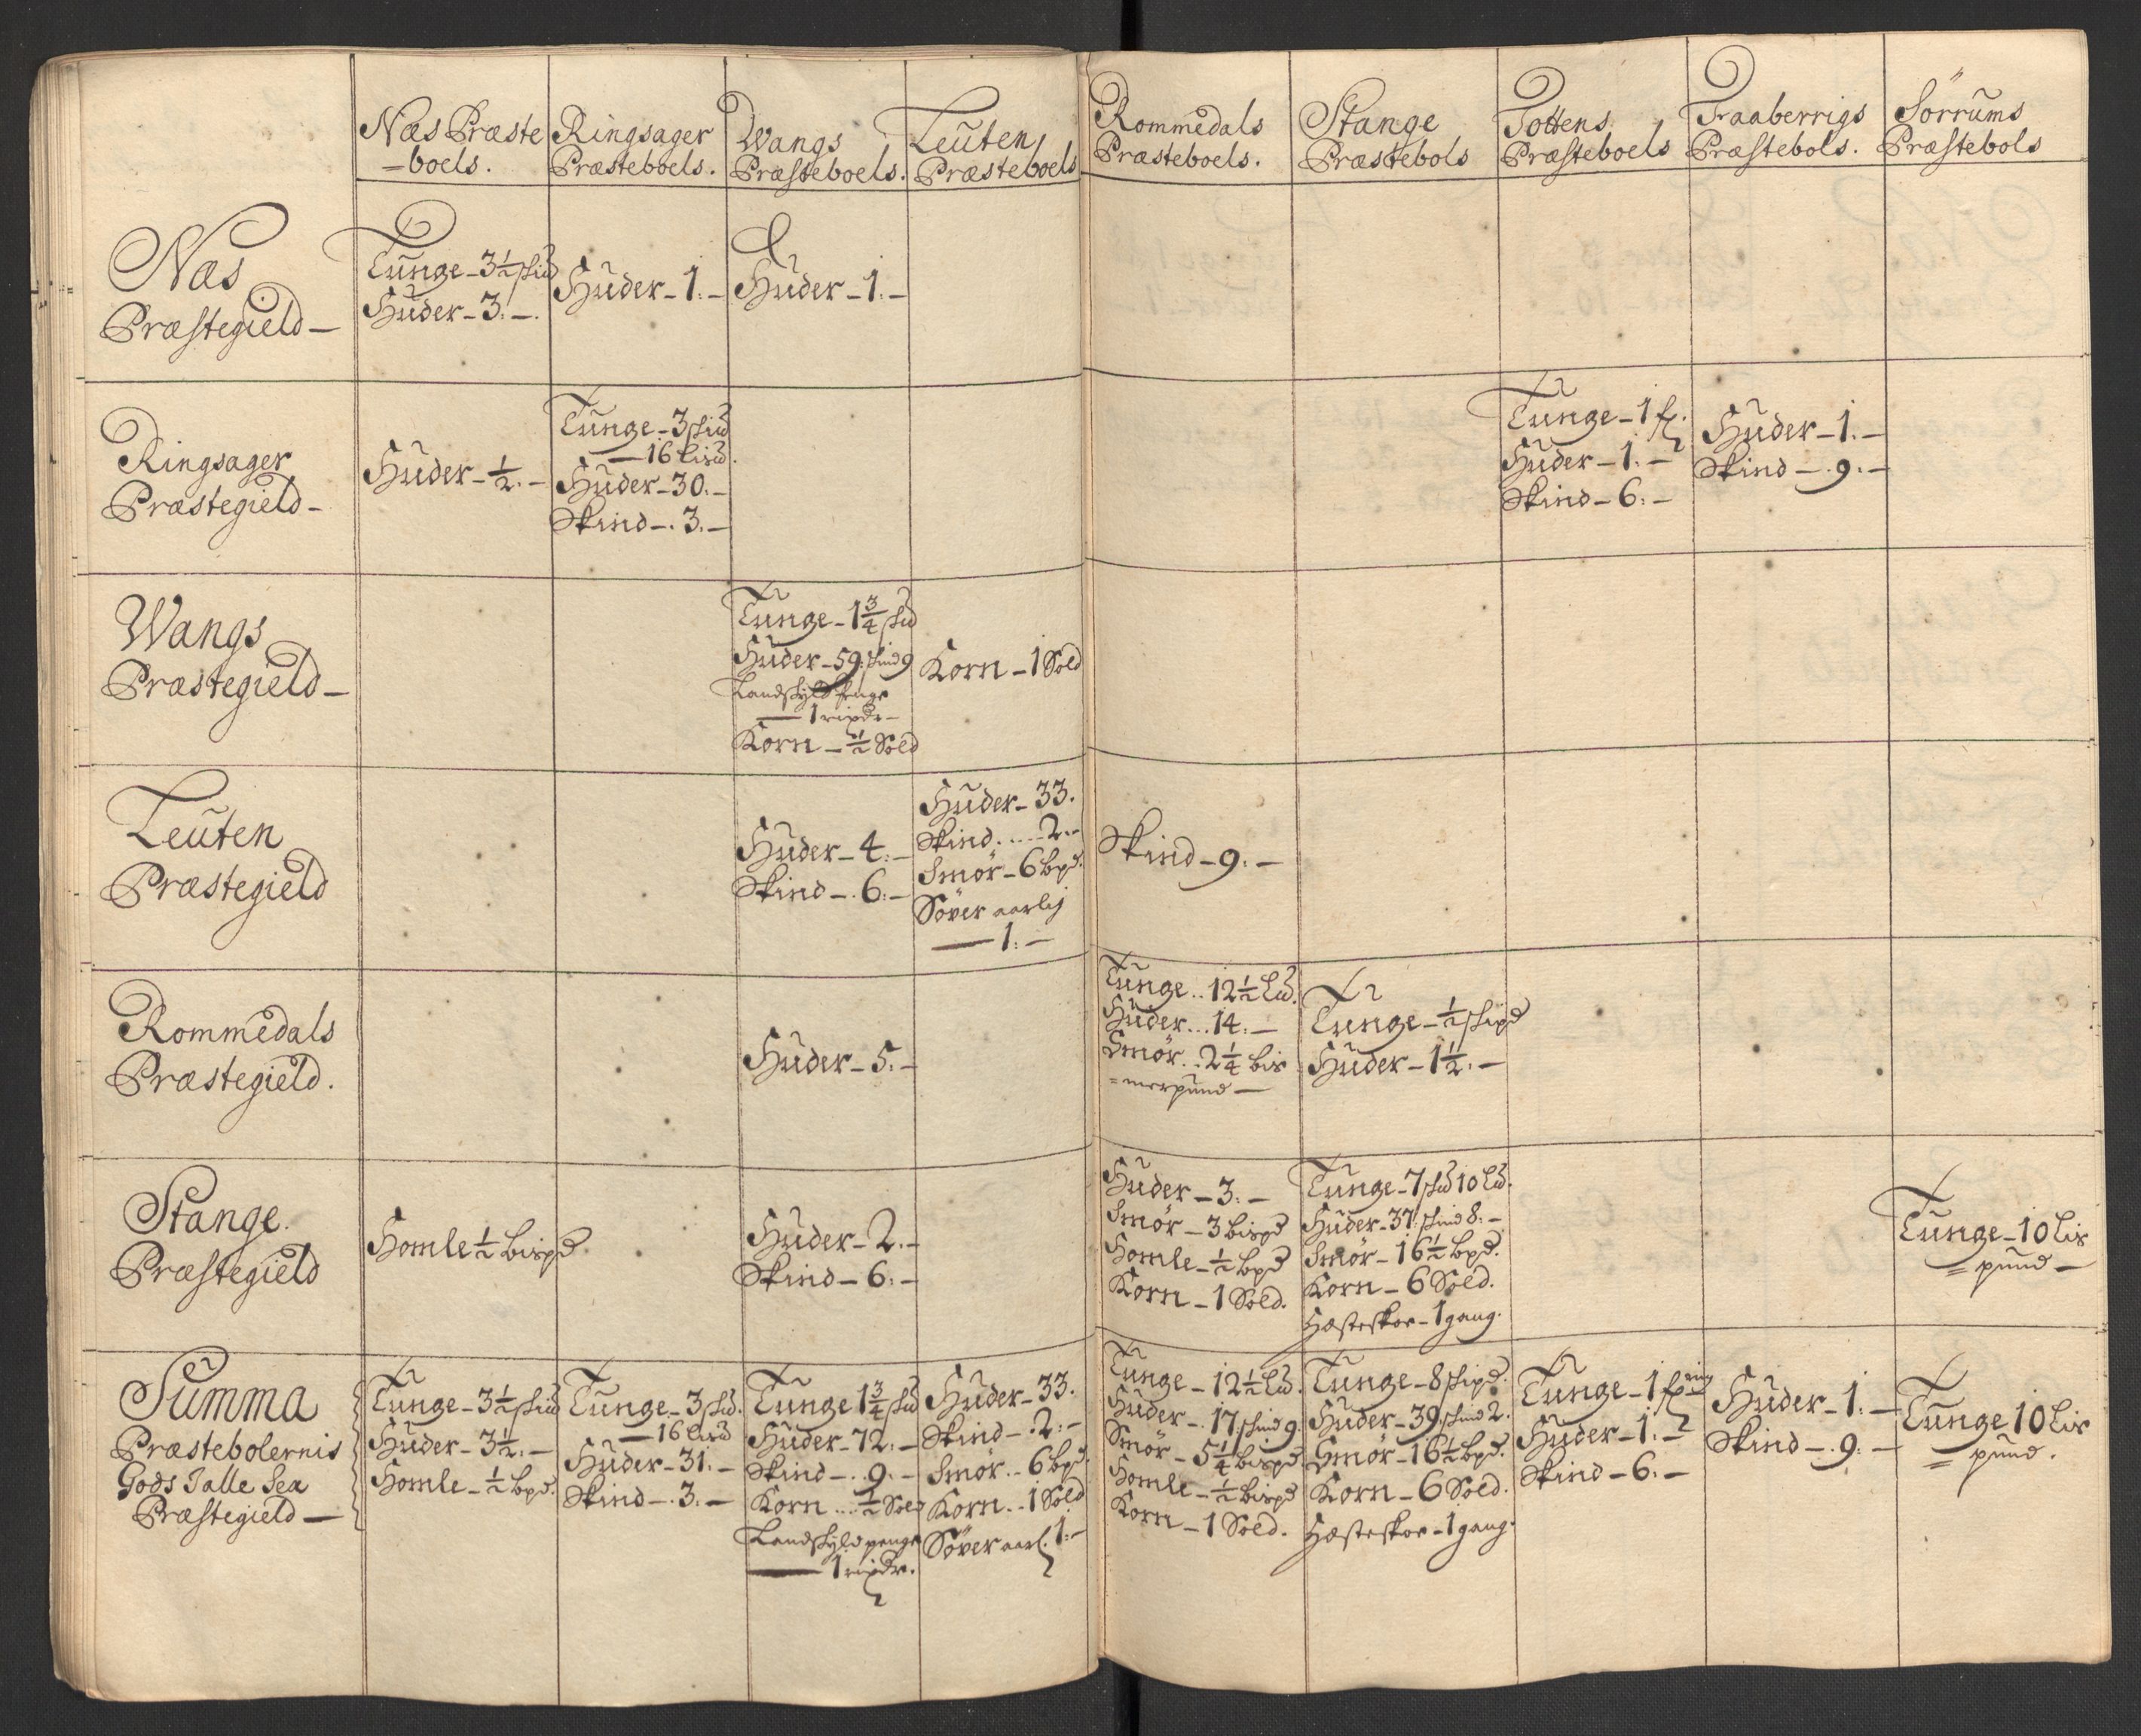 Næs Præste
=boels.
Ringsager
Præsteboels.
Wangs
Præsteboels.
Leuten
Præsteboels
Rommedals
Præsteboels.
Stange
Præstebols
Tottens
Præsteboels
Traaberrigs
Præstebols.
Sörrums
Præstebols
Næs
Præstegield—
Tunge - 3½ skud
Huder - 3. —.
Huder - 1. —
Huder - 1. —
Ringsager
Præstegield -
Huder - ½. —
Tunge - 3 skud
— 16 Lisd.
Huder - 30. —
Skind - . 3. —
Tunge - 1 f.
Huder - 1. —
Skind - 6. —
Huder - 1. —
Skind - . 9. —
Wangs
Præstegield —
Tunge - 1¾ skud
Huder - 59. skind 9
Landskyld penge
— 1 rixdr. —
Korn - ½ Sold
Korn - 1 Sold
Leuten
Præstegield
Huder - 4. —
Skind - . 6. —
Huder - 33.
Skind .... 2. —
Smör - 6 bpd.
Söver aarlig
— 1. —
Skind - 9. —
Rommedals
Præstegield.
Huder - 5. —
Tunge .. 12½ Lud.
Huder ... 14. —
Smör .. 2¼ bis
=merpund —
Tunge - ½ skipd
Huder - 1½. —
Stange.
Præstegield
Homle ½ bispd
Huder - 2. —
Skind - 6. —
Huder - 3. —
Smör - 3 bispd
Homle - ½ bpd
Korn - 1 Sold.
Tunge - 7 skud 10 Lud.
Huder - 37. skind 8. —
Smör - 16½ bpd.
Korn - 6 Sold.
Hæsteskoe - 1 gang.
Tunge - 10 Lis
= pund —
Summa
Præstebolernis
Gods J alle Sex
Præstegield —
Tunge - 3½ skud
Huder - 3½. —
Homle - ½ bpd.
Tunge - 3 skud.
— 16 Lisd
Huder - 31. —
Skind - . 3. —
Tunge 1¾ skud
Huder - 72. —
Skind - .. 9. —
Korn .... ½ Sold
Landskyld penge
— 1 rixdr.
Huder - 33.
Skind - . 2. —
Smör .. 6 bpd.
Korn .. 1 Sold
Söver aarl. 1. —
Tunge - 12½ Lud.
Huder - . 17. skind 9.
Smör - 5¼ bispd
Homle - ½ bispd
Korn - 1 Sold.
Tunge - 8 skipd.
Huder - 39. skind 2.
Smör - 16½ bpd.
Korn - 6 Sold.
Hæsteskoe - 1 gang.
Tunge - 1
Huder - 1. —
Skind - 6. —
Huder - 1. —
Skind - . 9. —
Tunge 10 Lis
= pund.